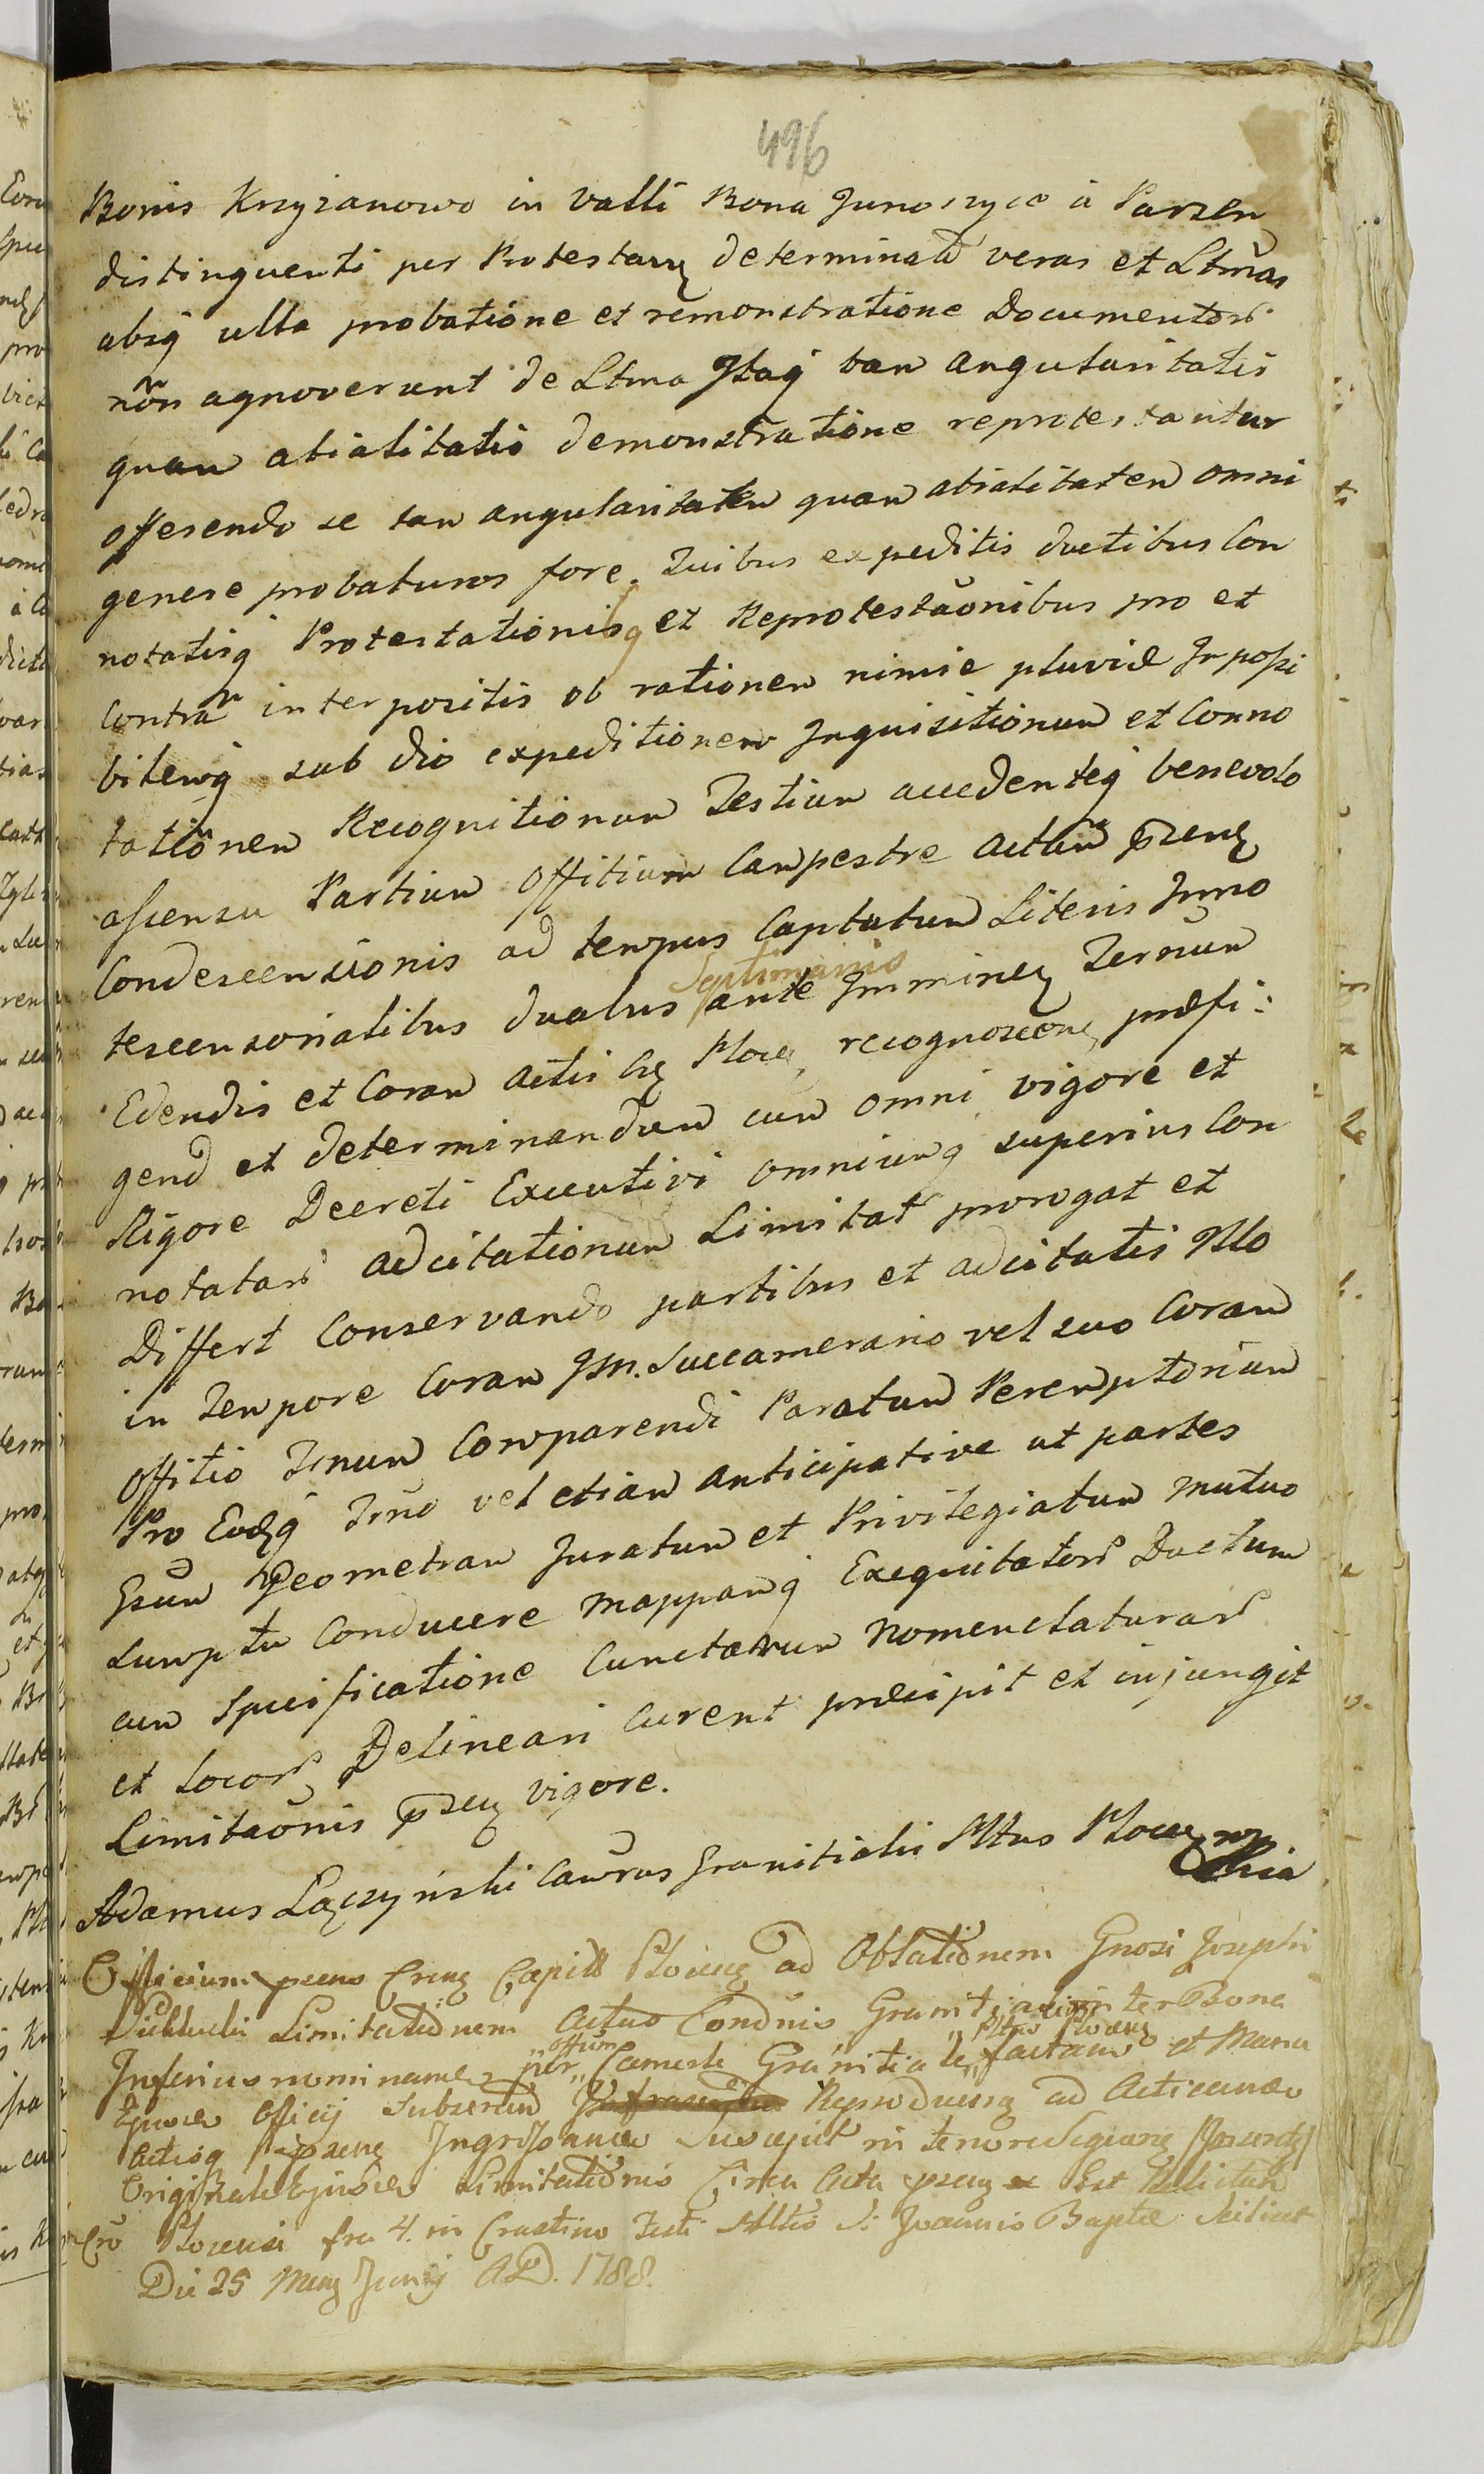 496
Bonis Krzyżanowo in Valli Bona Junoszyce á Parzen
distinguenti per Protestan determinatū veras et Ltmas
absq ulla probatióne et remonstratióne Documentor
nōn agnoverunt de Ltma Itaq tam angularitatis
quam abialitatis demonstratióne reprotestantur
offerendo se tam angularitatem quam abialitatem omni
genere probaturos fore. Quibus expeditis ductibus Con
notatisq Protestationibq et Reprotestaōnibus pro et
Contra interpositis ob ratiónem nimiæ pluviæ Impossi
bilemq sub dio expeditiónem Inquisitiónum et Conno
tatiónem Recognitiónum Testium accedenteq benevolo
assensu Partium Offitium Campestre actum pzens
Condescensionis ad tempus Captatum Literis Inno
tescensorialibus duabus Septimanis ante Imminen Ternum
Edendis et Coram Actis Cs Ploces recognoscens præfi:
gend et determinandum cum omni vigore et
Rigore Decreti Executivi omniumq superius Con
notatar adcitatiónum Limitat prorogat et
Differt Conservando partibus et adcitatis Illo
in Tempore Coram Jm. Succamerario vel suo Coram
Offitio Tnum Comparendi Paratum Peremptorium
Pro Eodq Tnō vel etiam anticipative ut partes
Gsum Geometram Juratum et Privilegiatum mutuo
Sumptu Conducere mappamq Exequitator Ductum
cum Specificatióne Cunctarum Nomenclaturar
et Locor Delineari Curent præcipit et injungit
Limitaōnis pzens vigore.
Adamus Łączyński Camrus Granitialis Pltus Plocen mp
Officium pzens Crens Capitle Plocens ad Oblatiónem Gnosi Josephi
Limitatiónem actus Condnis Granitialis inter Bona
Inferius nominanda per offum Camestre Granitiale Pltus Plocens factam et Manu
Ejusdem Officij Subscram Reproducens ad Acticandu
Actisq pzens Ingrossandu Suscepit in tenore Sequens
Originale Ejusdem Limitatiónis Circa Acta pzens est Relictum
Crō Plocensi fra 4. in Crastino Festi Nltis S: Joannis Baptæ scilicet
Die 25 Mens Junij A.D. 1788.